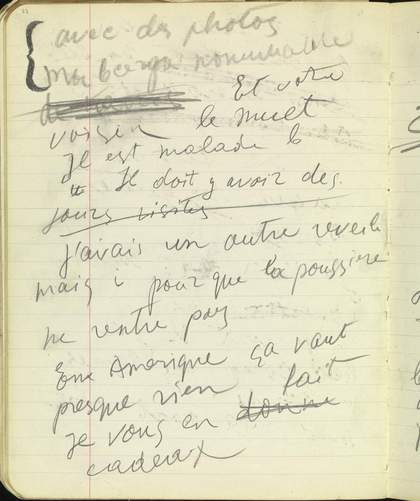 avec des photos
ma
Et votre
voisin le muet
Il est malade
Il doit y avoir des
jours visites
J'avais un autre reveil
mais pour que la poussière
ne rentre pas
En Amerique ça vaut
presque rien
Je vous en donne fait
cadeaux